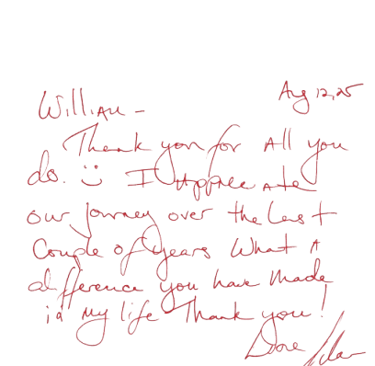 Aug 12, 25
William -
Thank you for all you
do. I appreciate
our journey over the last
Couple of years What A
difference you have made
in my life Thank you!